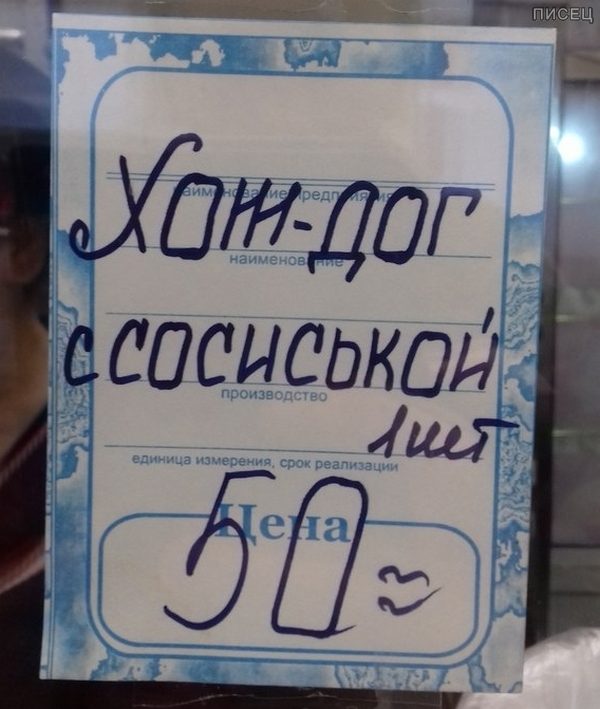 ПИСЕЦ
наименование предприятия
Хот-дог
наименование
с сосиськой
производство
1 шт
единица измерения, срок реализации
Цена
50=